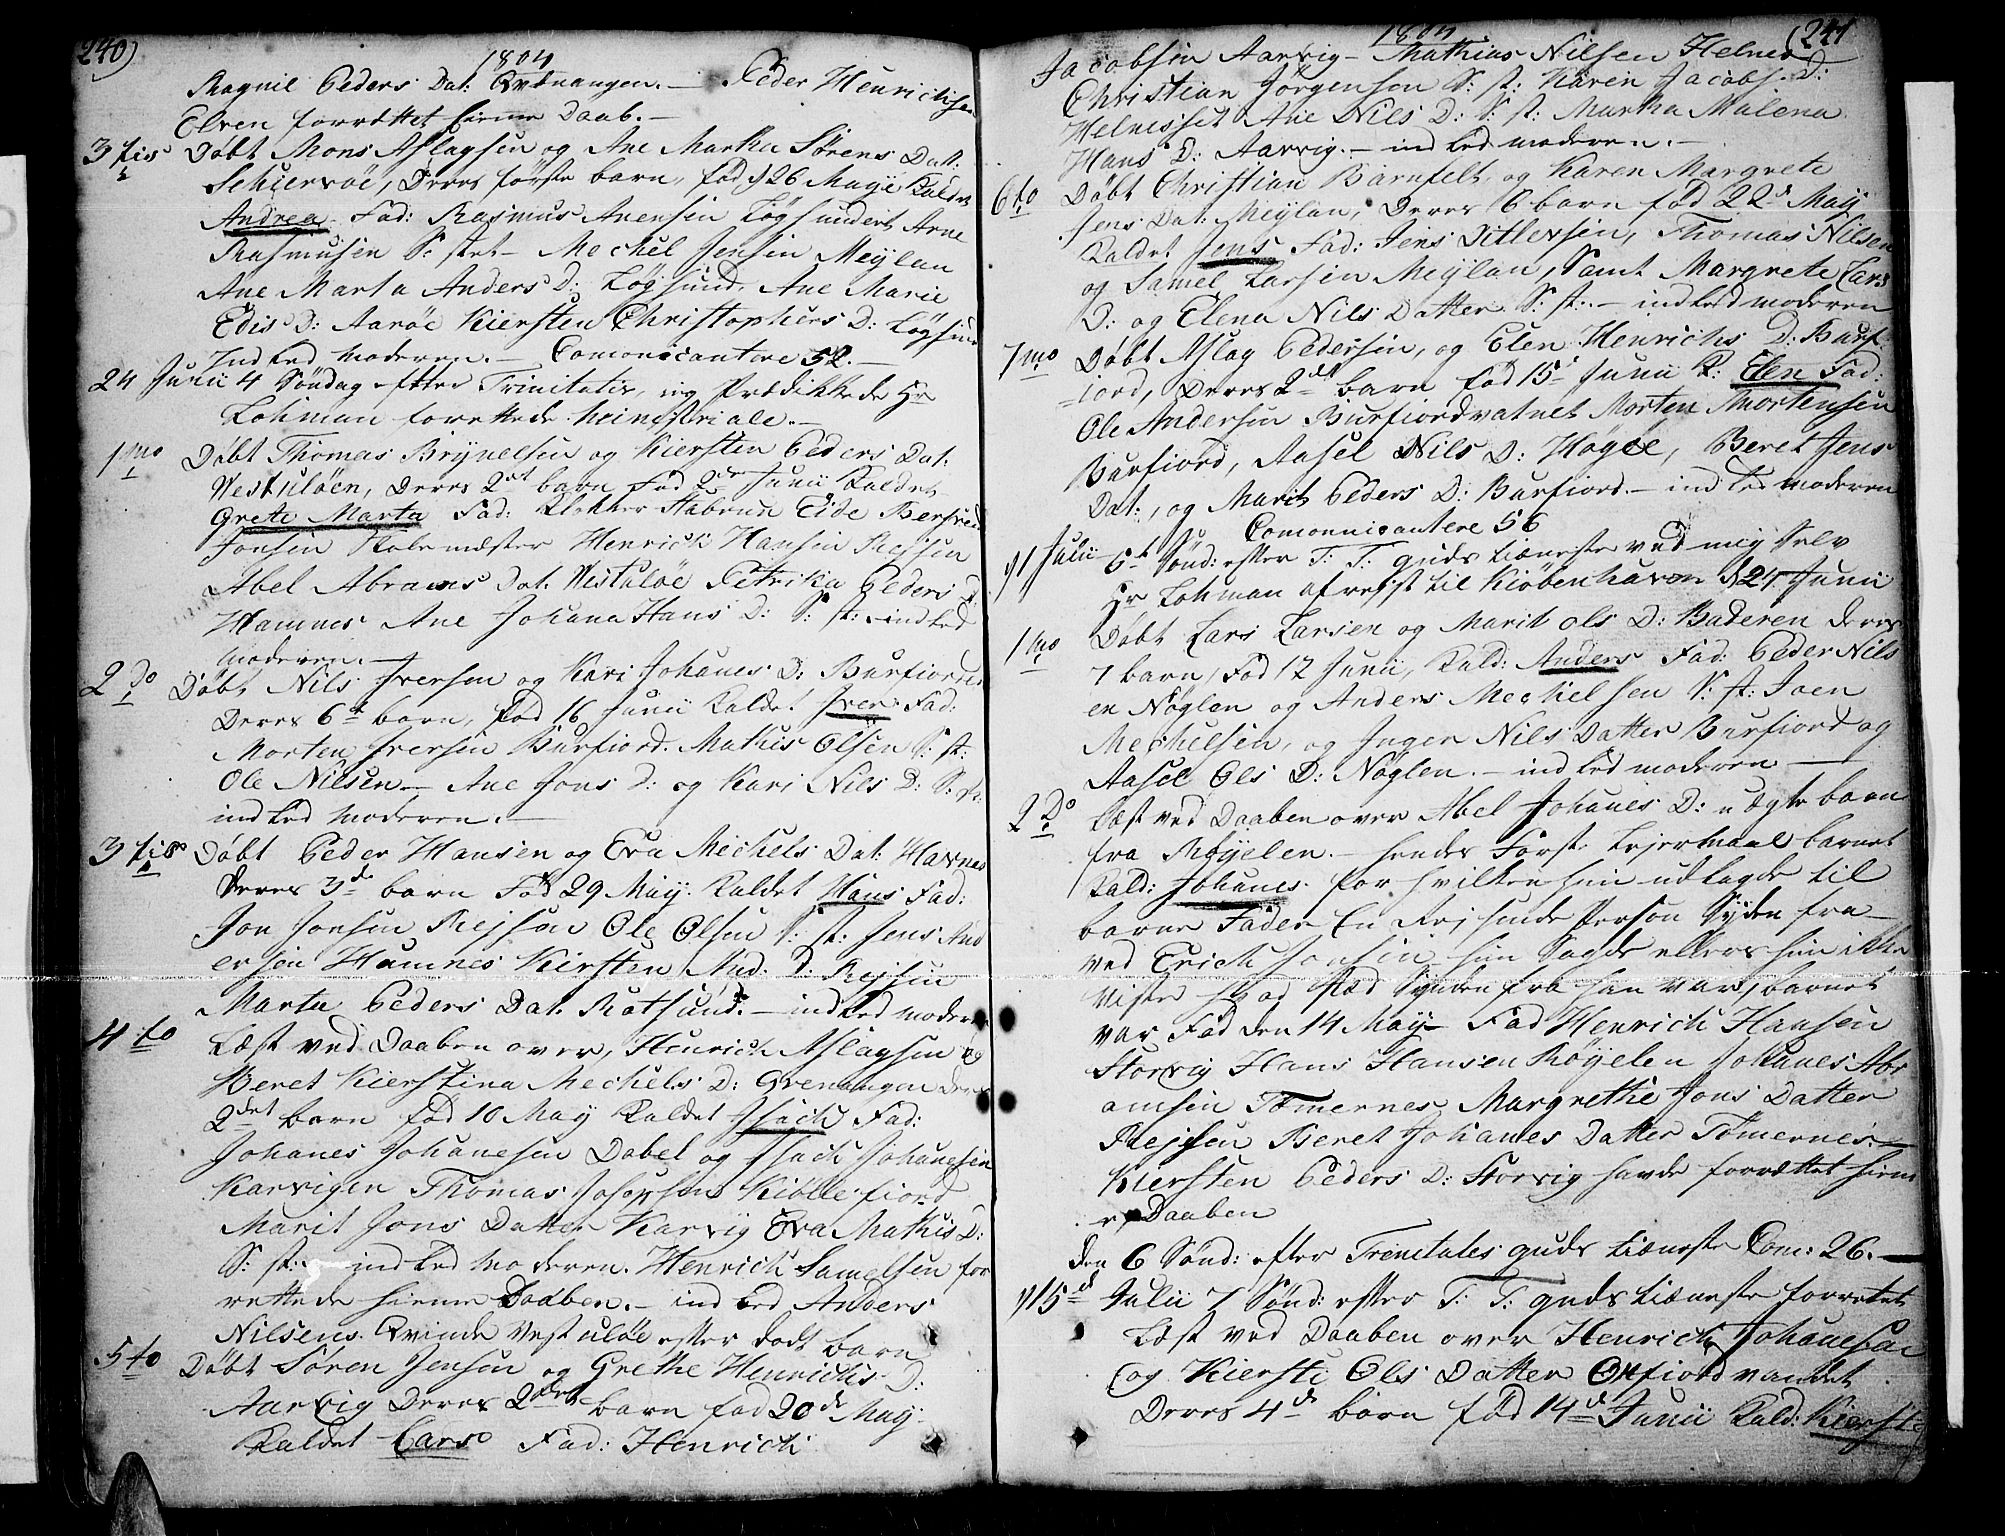 240)
1804
Ragnil Peders Dat: Qvænangen. — Peder Henrichsen
Elven forrættet hieme Daab. —
3 tio Døbt Mons Aslagsen og Ane Martha Sørens Dat:
Schiervøe, Deres første barn, fød d 26 Maye Kaldet
Andrea Fad: Rasmus Arensen Løgsundet Arne
Rasmusen S: stet — Mechel Jensen Meylan
Ane Marta Anders D: Løgsund, Ane Marie
Edis D: Aarøe Kiersten Christophers D: Løgsund
Indled Moderen. — Comonicantere 52. —
24 Junii 4 Søndag efter Trinitatis, og Prædikkede Hr
Lohman forrettede
1mo Døbt Thomas Brynelsen og Kiersten Peders Dat.
Westuløen, Deres 2det barn Fød 2den Junii Kaldet
Grete Marta Fad: Klokker Eide
Jonsen Skolemæster Henrich Hansen Rejsen
Abel Abrams Dat. Westuløe Petrika Peders D:
Hamnes Ane Johana Hans D: S: st: — indled
Moderen. —
2do Døbt Nils Iversen og Kari Johanes D: Burfiorden
Deres 6te barn, fød 16 Junii Kaldet Iver Fad:
Morten Iversen Burfiord. Mathis Olsen S: st:
Ole Nilsen — Ane Jons D: og Kari Nils D: S: st:
indled Moderen. —
3 tio Døbt Peder Hansen og Eva Mechels Dat: Havnes
Deres 3de barn Fød 29 May. Kaldet Hans Fad:
Jon Jonsen Rejsen Ole Olsen S: st: Jens And
ersen Hamnes Kiersten And: D: Rejsen
Marta Peders Dat. Rotsund. — indled moderen
4 to Læst ved Daaben over, Henrich Aslagsen og
Beret Kierstina Mechels D: deres
2det barn fød 10 May Kaldet Isach Fad:
Johanes Johanesen Dabel og Isach Johanesen
Karvigen Thomas Josepsen Kiøllefiord
Marit Jons Datter Karvig Eva Mathis D:
S: st: — indled Moderen. Henrich Samelsen for
rettede hieme Daaben. — indled Anders
Nilsens Qvinde Vestuløe efter dødt barn
5 to Døbt Søren Jensen og Grethe Henrichs D:
Aarvig Deres 2det barn fød 20de May
Kaldet Lars Fad: Henrich
1804
(241
Jacobsen Aarvig — Mathias Nilsen Helnes
Christian Jørgensen S: st: Karen Jacobs D:
Helnesset Ane Nils D: S: st: Martha Malena
Hans D: Aarvig. — indled moderen. —
6 to Døbt Christian Barnfelt, og Karen Margrete
Jens Dat: Meylan, Deres 6 barn fød 22de May
Kaldet Jens Fad: Jens Ditlevsen, Thomas Nilsen
og Samel Larsen Meylan, Samt Margrete Lars
D: og Elena Nils Datter S: st: — indled moderen
7mo Døbt Aslag Pedersen, og Elen Henrichs D: Burf
iord, Deres 2det barn fød 15de Junii K: Elen Fad:
Ole Andersen Burfiordvatnet Morten Mortensen
Burfiord, Aasel Nils D: Høgøe, Beret Jens
Dat:, og Marit Peders D: Burfiord. — indled moderen
Comonnicantere 56
d 1 Julii 5te Sønd: efter T: T: guds tiæneste ved mig Selv
Hr Lohman afrejst til Kiøbenhavn d 24 Junii
1mo Døbt Lars Larsen og Marit Ols D: Baderen deres
7 barn, Fød 12 Junii, Kald: Anders Fad: Peder Nils
en Nøglen og Anders Mechelsen S: st: Joen
Mechelsen, og Inger Nils Datter Burfiord og
Aasel Ols D: Nøglen. — indled moderen —
2do Læst ved Daaben over Abel Johanes D: uægte barn
fra Røyelen. — hendes Første Lejermaal barnet
Kald: Johanes. for hvilken hun udlagde til
barne Fader En Rejsende Person Syden fra —
ved Erich Jonsen hun Sagde ellers hun ikke
Viste hvad Stæd Synden fra han var, barnet
var Fød den 14 May — Fad Henrich Hansen
Storvig Hans Hansen Røyelen Johanes Abr
amsen Tømernes Margrethe Jons Datter
Rejsen Beret Johanes Datter Tømernes. —
Kiersten Peders D: Storvig havde forrættet hieme
Daaben
den 6 Sønd: efter Trenitates guds tiæneste Com: 26. —
d 15de Julii 7 Sønd: efter T: T: guds tiæneste forrettet
Læst ved Daaben over Henrich Johanesen
og Kiersti Ols Datter Oxfiordvandet
Deres 4de barn fød 14de Junii Kald: Kiersti